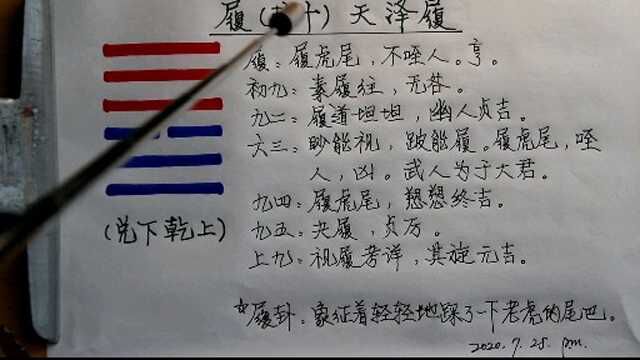 履(十) 天泽履
履：履虎尾，不咥人。亨。
初九：素履往，无咎。
九二：履道坦坦，幽人贞吉。
六三：眇能视，跛能履。履虎尾，咥
人，凶。武人为于大君。
九四：履虎尾，愬愬终吉。
九五：夬履，贞厉。
上九：视履考详，其旋元吉。
(兑下乾上)
☆履卦：象征着轻轻地踩了一下老虎的尾巴。
2020.7.28. p.m.